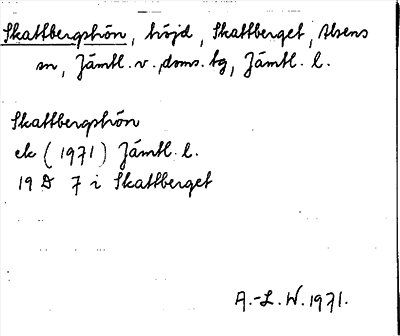 Skattbergshön, höjd, Skattberget, Alsens
sn, Jämtl. v. doms. tg, Jämtl. l.
Skattbergshön
ek (1971) Jämtl. l.
19 D 7 i Skattberget
A.-L. W. 1971.